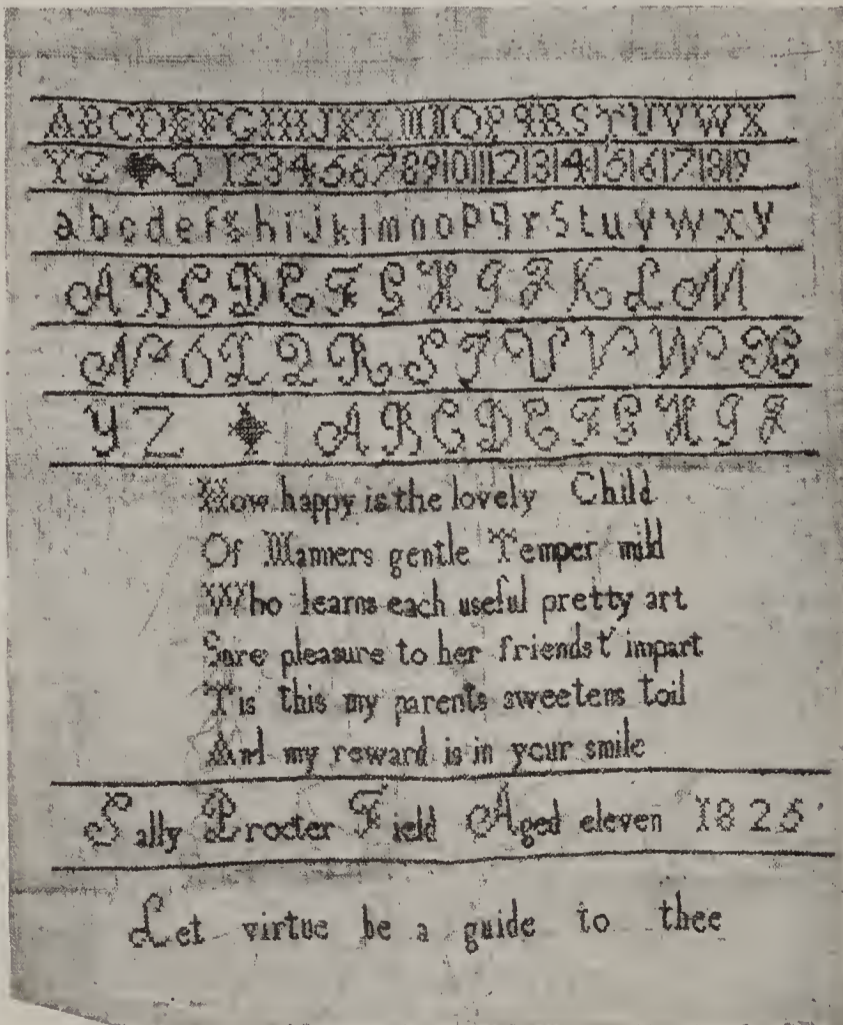 ABCDEFGHIJKLMNOPqRSTUVWX
YZ O 12345678910111213141516171819
abcdefghijklmnopqrstuvwxy
ABCDEFGHIJKLM
NOPQRSTUVWX
YZ ABCDEFGHIJ
How happy is the lovely Child
Of Manners gentle Temper mild
Who learns each useful pretty art
Sure pleasure to her friends t' impart
Tis this my parents sweetens toil
And my reward is in your smile
Sally Procter Field Aged eleven 1825
Let virtue be a guide to thee